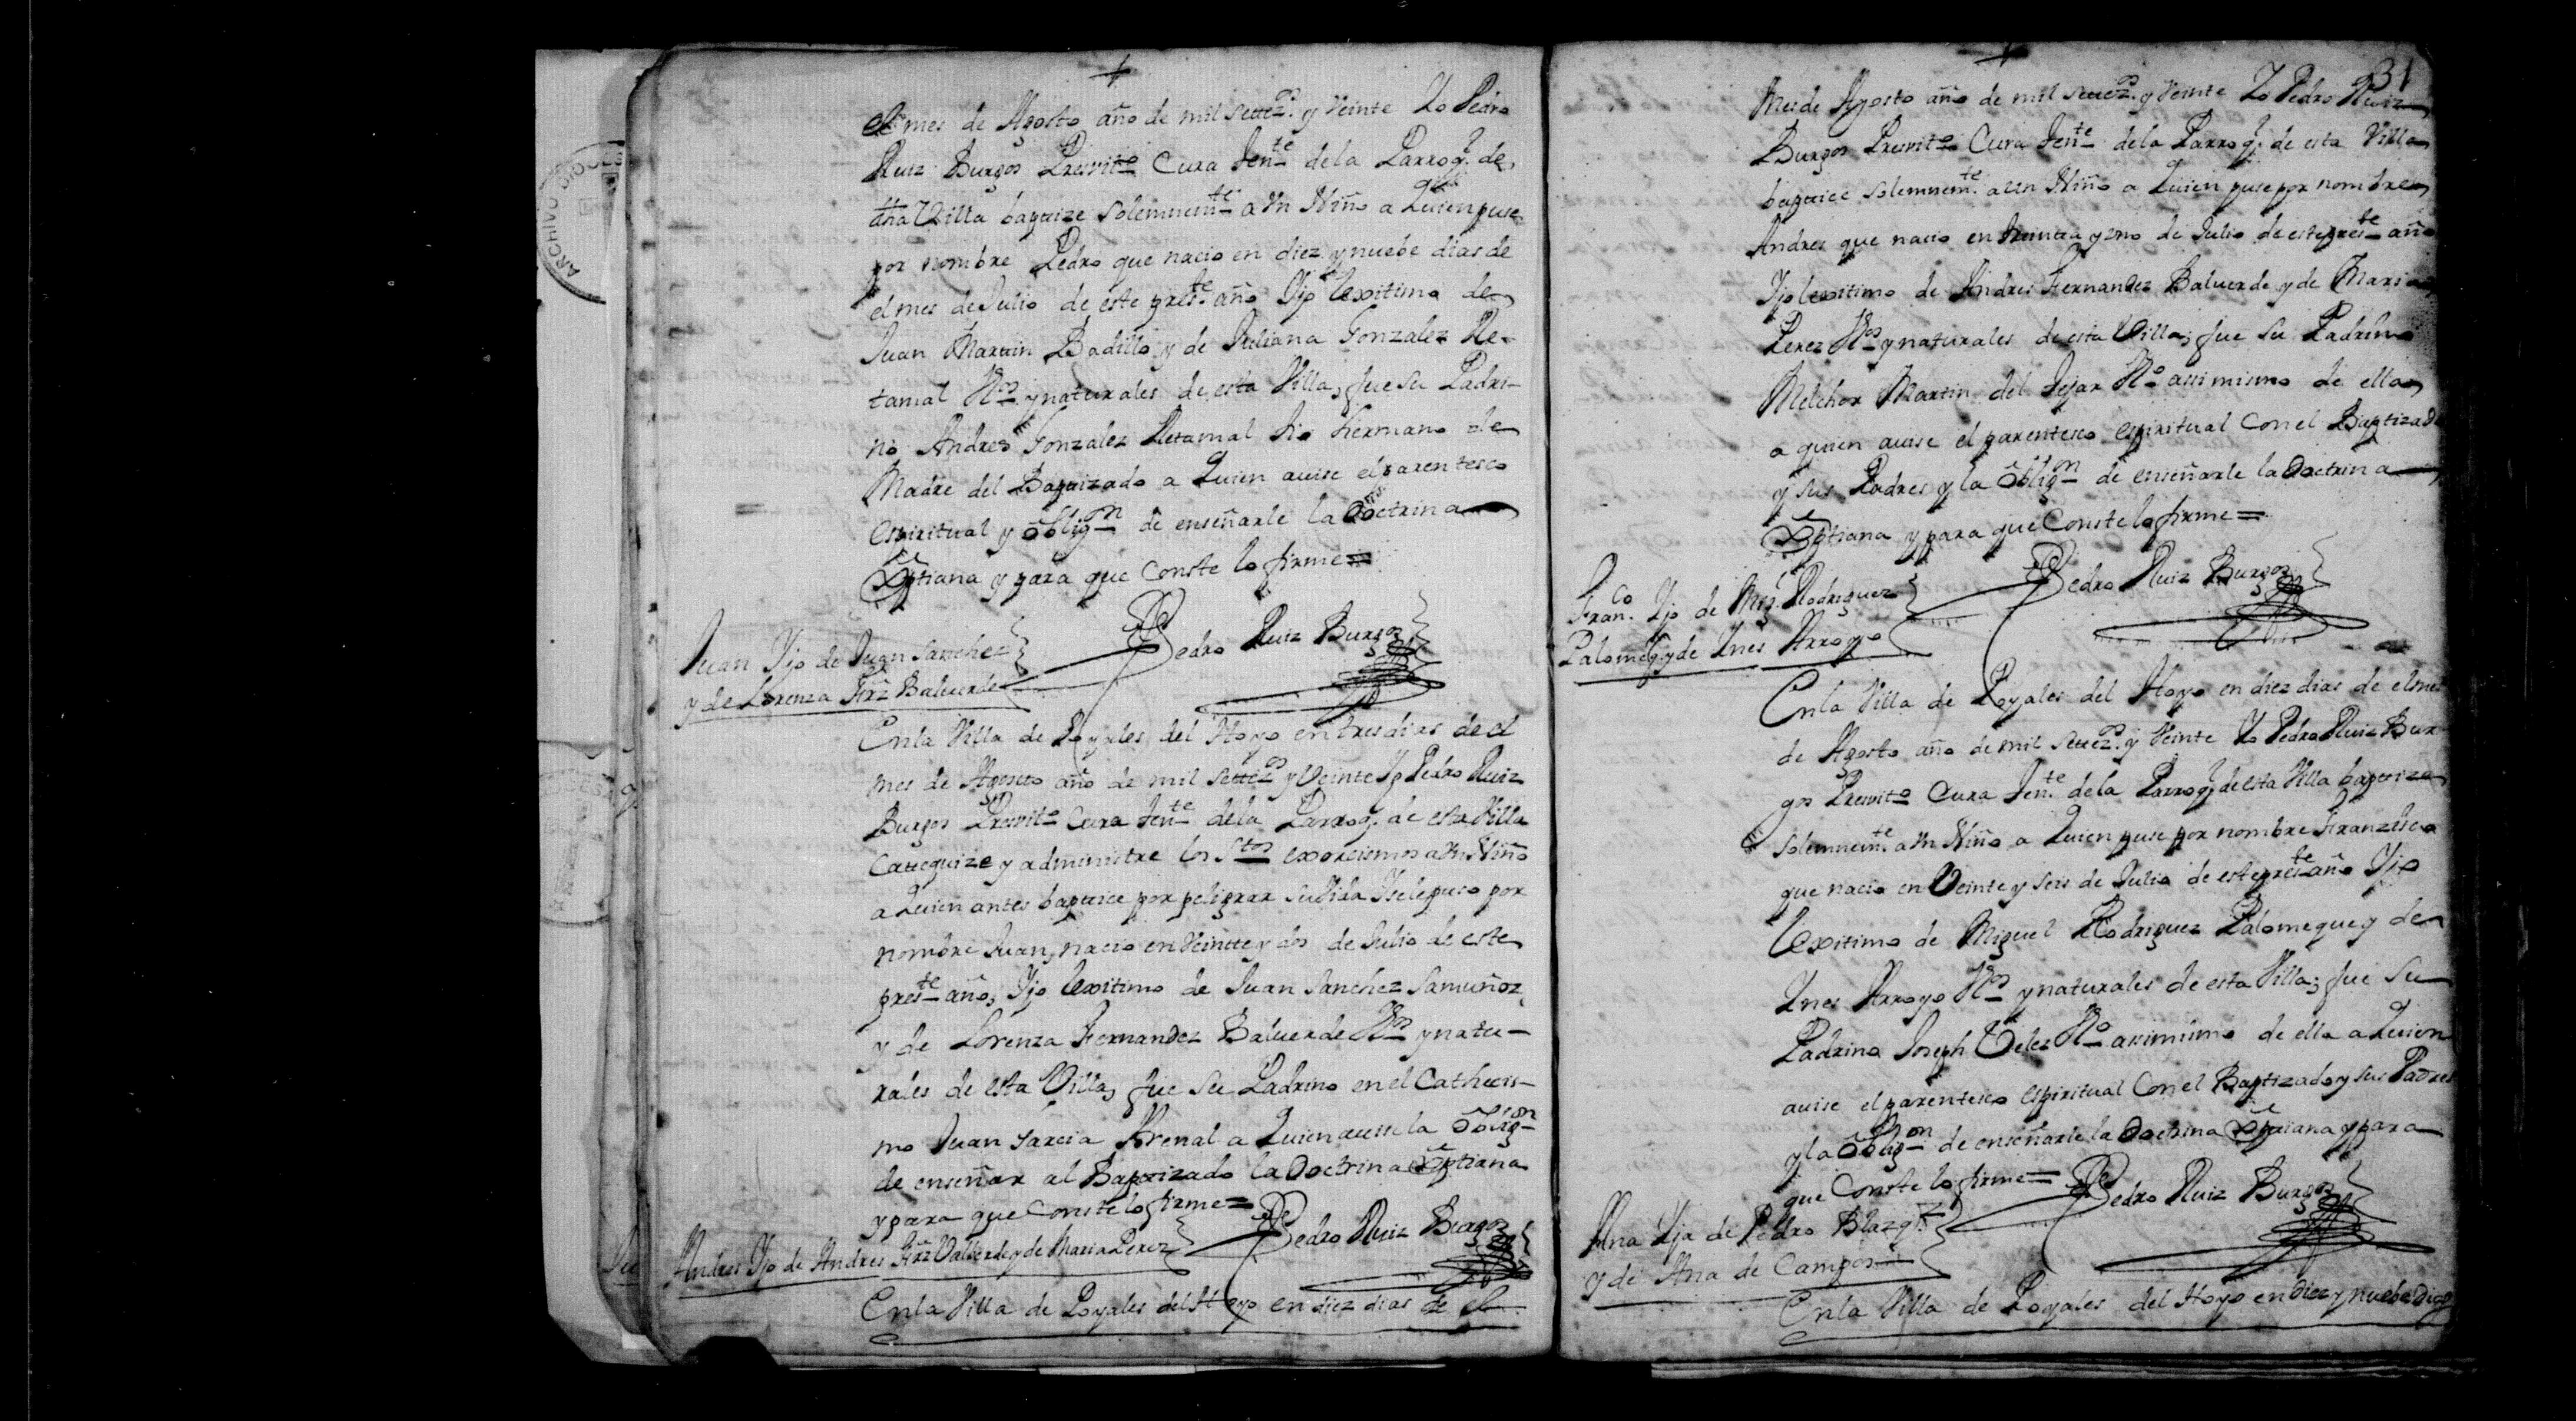 el mes de Agosto año de mil settezos. y Veinte Yo Pedro
Ruiz Burgos Presvito Cura Tente de la Parroql. de
dha Villa baptize solemnemte a Vn Niño a Quien puse
por nombre Pedro que nacio en diez y nuebe dias de
el mes de Julio de este preste. año Yjo lexitimo de
Juan Martin Badillo y de Juliana Gonzalez Re-
tamal Vos. y naturales de esta Villa, fue su Padri-
no Andres Gonzalez Retamal tio hermano de
Madre del Baptizado a Quien auise el parentesco
espiritual y obligon de enseñarle la Doctrina
Xptiana y para que Conste lo firme =
Pedro Ruiz Burgos
Juan Yjo de Juan Sanchez
y de Lorenza Frz Baluerde
En la Villa de Poyales del Hoyo en tres dias de el
mes de Agosto año de mil settezos y Veinte Yo Pedro Ruiz
Burgos Presvito Cura Tente de la Parroql. de esta Villa
Catequize y administre los Stos exorcismos a Vn Niño
a Quien antes baptice por peligrar su Vida Y se le puso por
nombre Juan, nacio en Veintte y dos de Julio de este
preste año, Yjo lexitimo de Juan Sanchez Samuñoz,
y de Lorenza Fernandez Baluerde Vos y natu-
rales de esta Villa, fue su Padrino en el Cathecis-
mo Juan Garcia Arenal a Quien auise la obligon
de enseñar al Baptizado la Doctrina Xptiana
y para que Conste lo firme =
Pedro Ruiz Burgos
Andres Yjo de Andres Frz Valverde y de Maria Perez
En la Villa de Poyales del Hoyo en diez dias de el
31
Mes de Agosto año de mil settezos. y Veinte Yo Pedro Ruiz
Burgos Presvito Cura Tente de la Parroql. de esta Villa
baptice solemnemte. a Vn Niño a Quien puse por nombre
Andres que nacio en treinta y vno de Julio de este preste año
Yjo lexitimo de Andres Fernandez Baluerde y de Maria
Perez Vos y naturales de esta Villa, fue su Padrino
Melchor Martin del Tejar Vo assi mismo de ella
a quien auise el parentesco espiritual con el Baptizado
y sus Padres y la obligon de enseñarle la Doctrina
Xptiana y para que Conste lo firme =
Pedro Ruiz Burgos
Franco. Yjo de Migl. Rodriguez
Palomeq. y de Ynes Arroyo
En la Villa de Poyales del Hoyo en diez dias de el mes
de Agosto año de mil settezos. y Veinte Yo Pedro Ruiz Bur-
gos Presvito Cura Tente. de la Parroql. de esta Villa baptize
solemnemte. a Vn Niño a Quien puse por nombre Franzisco
que nacio en Veinte y seis de Julio de este preste año Yjo
lexitimo de Miguel Rodriguez Palomeque y de
Ynes Arroyo Vos y naturales de esta Villa, fue su
Padrino Joseph Telez Vo assimismo de ella a Quien
auise el parentesco espiritual con el Baptizado y sus Padres
y la obligon de enseñarle la Doctrina Xptiana y para
que Conste lo firme =
Pedro Ruiz Burgos
Ana Yja de Pedro Blazqz.
y de Ana de Campos
En la Villa de Poyales del Hoyo en diez y nuebe dias